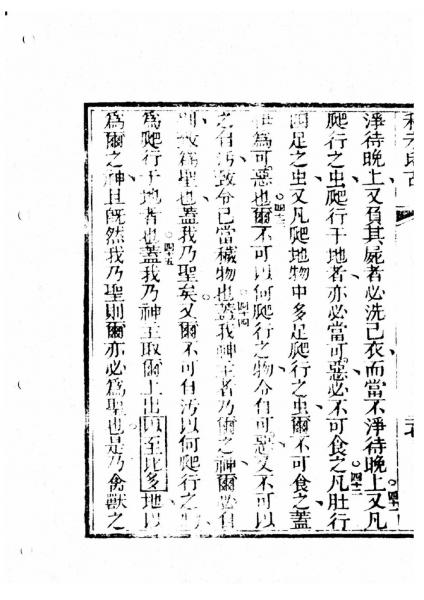 淨待晚上又負其屍者必洗己衣而當不淨待晚上又凡
四十一
爬行之虫爬行于地者亦必當可惡必不可食之凡肚行
四十二
四足之虫又凡爬地物中多足爬行之虫爾不可食之蓋
為可惡也爾不可以何爬行之物令自可惡又不可以
四十三
之自污致令己當穢物也蓋我神主者乃爾之神爾必自
四十四
別致為聖也蓋我乃聖矣又爾不可自污以何爬行之
為爬行于地者也蓋我乃神主取爾上出以至比多地以
四十五
為爾之神且既然我乃聖則爾亦必為聖也是乃禽獸之